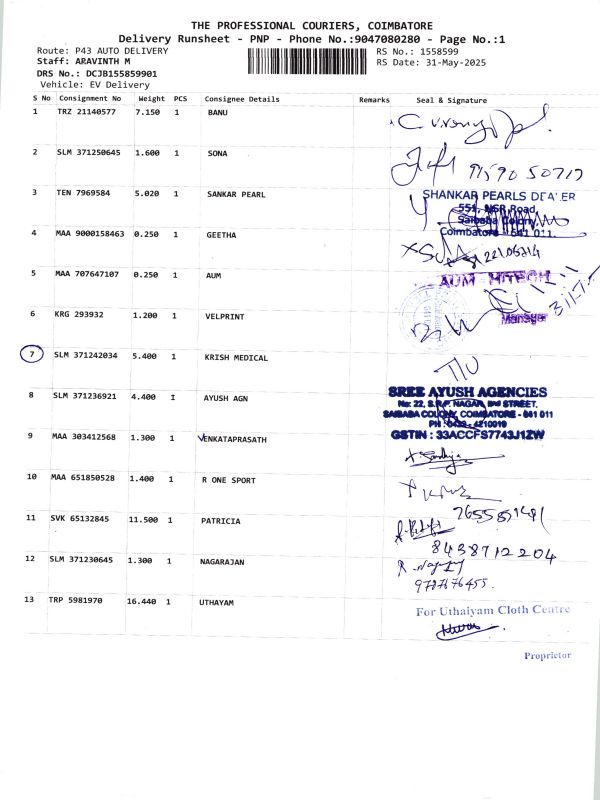 THE PROFESSIONAL COURIERS, COIMBATORE
Delivery Runsheet - PNP - Phone No.:9047080280 - Page No.:1
Route: P43 AUTO DELIVERY
RS No.: 1558599
Staff: ARAVINTH M
RS Date: 31-May-2025
DRS No.: DCJB155859901
Vehicle: EV Delivery
S No Consignment No Weight PCS Consignee Details Remarks Seal & Signature
1 TRZ 21140577 7.150 1 BANU
2 SLM 371250645 1.600 1 SONA
3 TEN 7969584 5.020 1 SANKAR PEARL
SHANKAR PEARLS DEALER
551, NSR Road,
Saibaba Colony,
Coimbatore - 641 011.
4 MAA 9000158463 0.250 1 GEETHA
5 MAA 707647107 0.250 1 AUM
AUM HITECH
Manager
6 KRG 293932 1.200 1 VELPRINT
7 SLM 371242034 5.400 1 KRISH MEDICAL
8 SLM 371236921 4.400 1 AYUSH AGN
SREE AYUSH AGENCIES
No: 22, S.R.P. NAGAR, IInd STREET,
SAIBABA COLONY, COIMBATORE - 641 011
PH : 0422 - 4210019
GSTIN : 33ACCFS7743J1ZW
9 MAA 303412568 1.300 1 VENKATAPRASATH
10 MAA 651850528 1.400 1 R ONE SPORT
11 SVK 65132845 11.500 1 PATRICIA
8438712204
12 SLM 371230645 1.300 1 NAGARAJAN
13 TRP 5981970 16.440 1 UTHAYAM
For Uthaiyam Cloth Centre
Proprietor